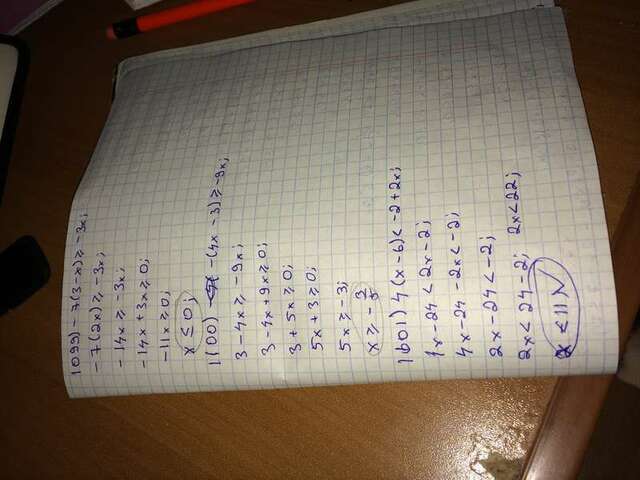 1099) -7(3-x) ≥ -3x;
-7(2x) ≥ -3x;
-14x ≥ -3x;
-14x + 3x ≥ 0;
-11x ≥ 0;
x ≤ 0;
1100) -(4x - 3) ≥ -9x;
3 - 4x ≥ -9x;
3 - 4x + 9x ≥ 0;
3 + 5x ≥ 0;
5x + 3 ≥ 0;
5x ≥ -3;
x ≥ -3/5
1601) 4(x - 6) < -2 + 2x;
4x - 24 < 2x - 2;
4x - 24 - 2x < -2;
2x - 24 < -2;
2x < 24 - 2; 2x < 22;
x < 11